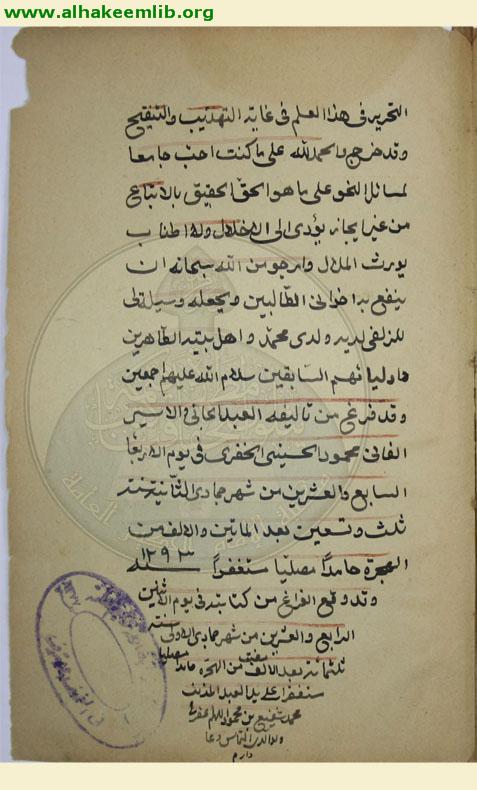 www.alhakeemlib.org
التحرير فى هذا العلم فى غاية التهذيب والتنقيح
وقد خرج والحمد لله على ما كنت احب جامعا
لمسائل النحو على ما هو الحق الحقيق بالاتباع
من غير ايجاز يؤدى الى الاخلال ولا اطناب
يورث الملال وارجو من الله سبحانه ان
ينفع به اخوانى الطالبين ويجعله وسيلة لى
للزلفى لديه ولدى محمد واهل بيته الطاهرين
واوليائهم السابقين سلام الله عليهم اجمعين
وقد فرغ من تاليفه العبد الجانى والاسير
الفانى محمود الحسينى فى يوم الاربعا
السابع والعشرين من شهر جمادى الثانية سنة
ثلث وتسعين بعد الماتين والالف من
الهجرة حامداً مصلياً مستغفراً سنه ١٢٩٣
وقد وقع الفراغ من كتابته فى يوم الاثنين
الرابع والعشرين من شهر جمادى الاولى سنة
ثلثمائة بعد الالف من الهجرة حامدا مصليا
مستغفرا على يد العبد المذنب
محمد شفيع بن محمود اللهم اغفر
ولوالديه التماس دعا
دارم